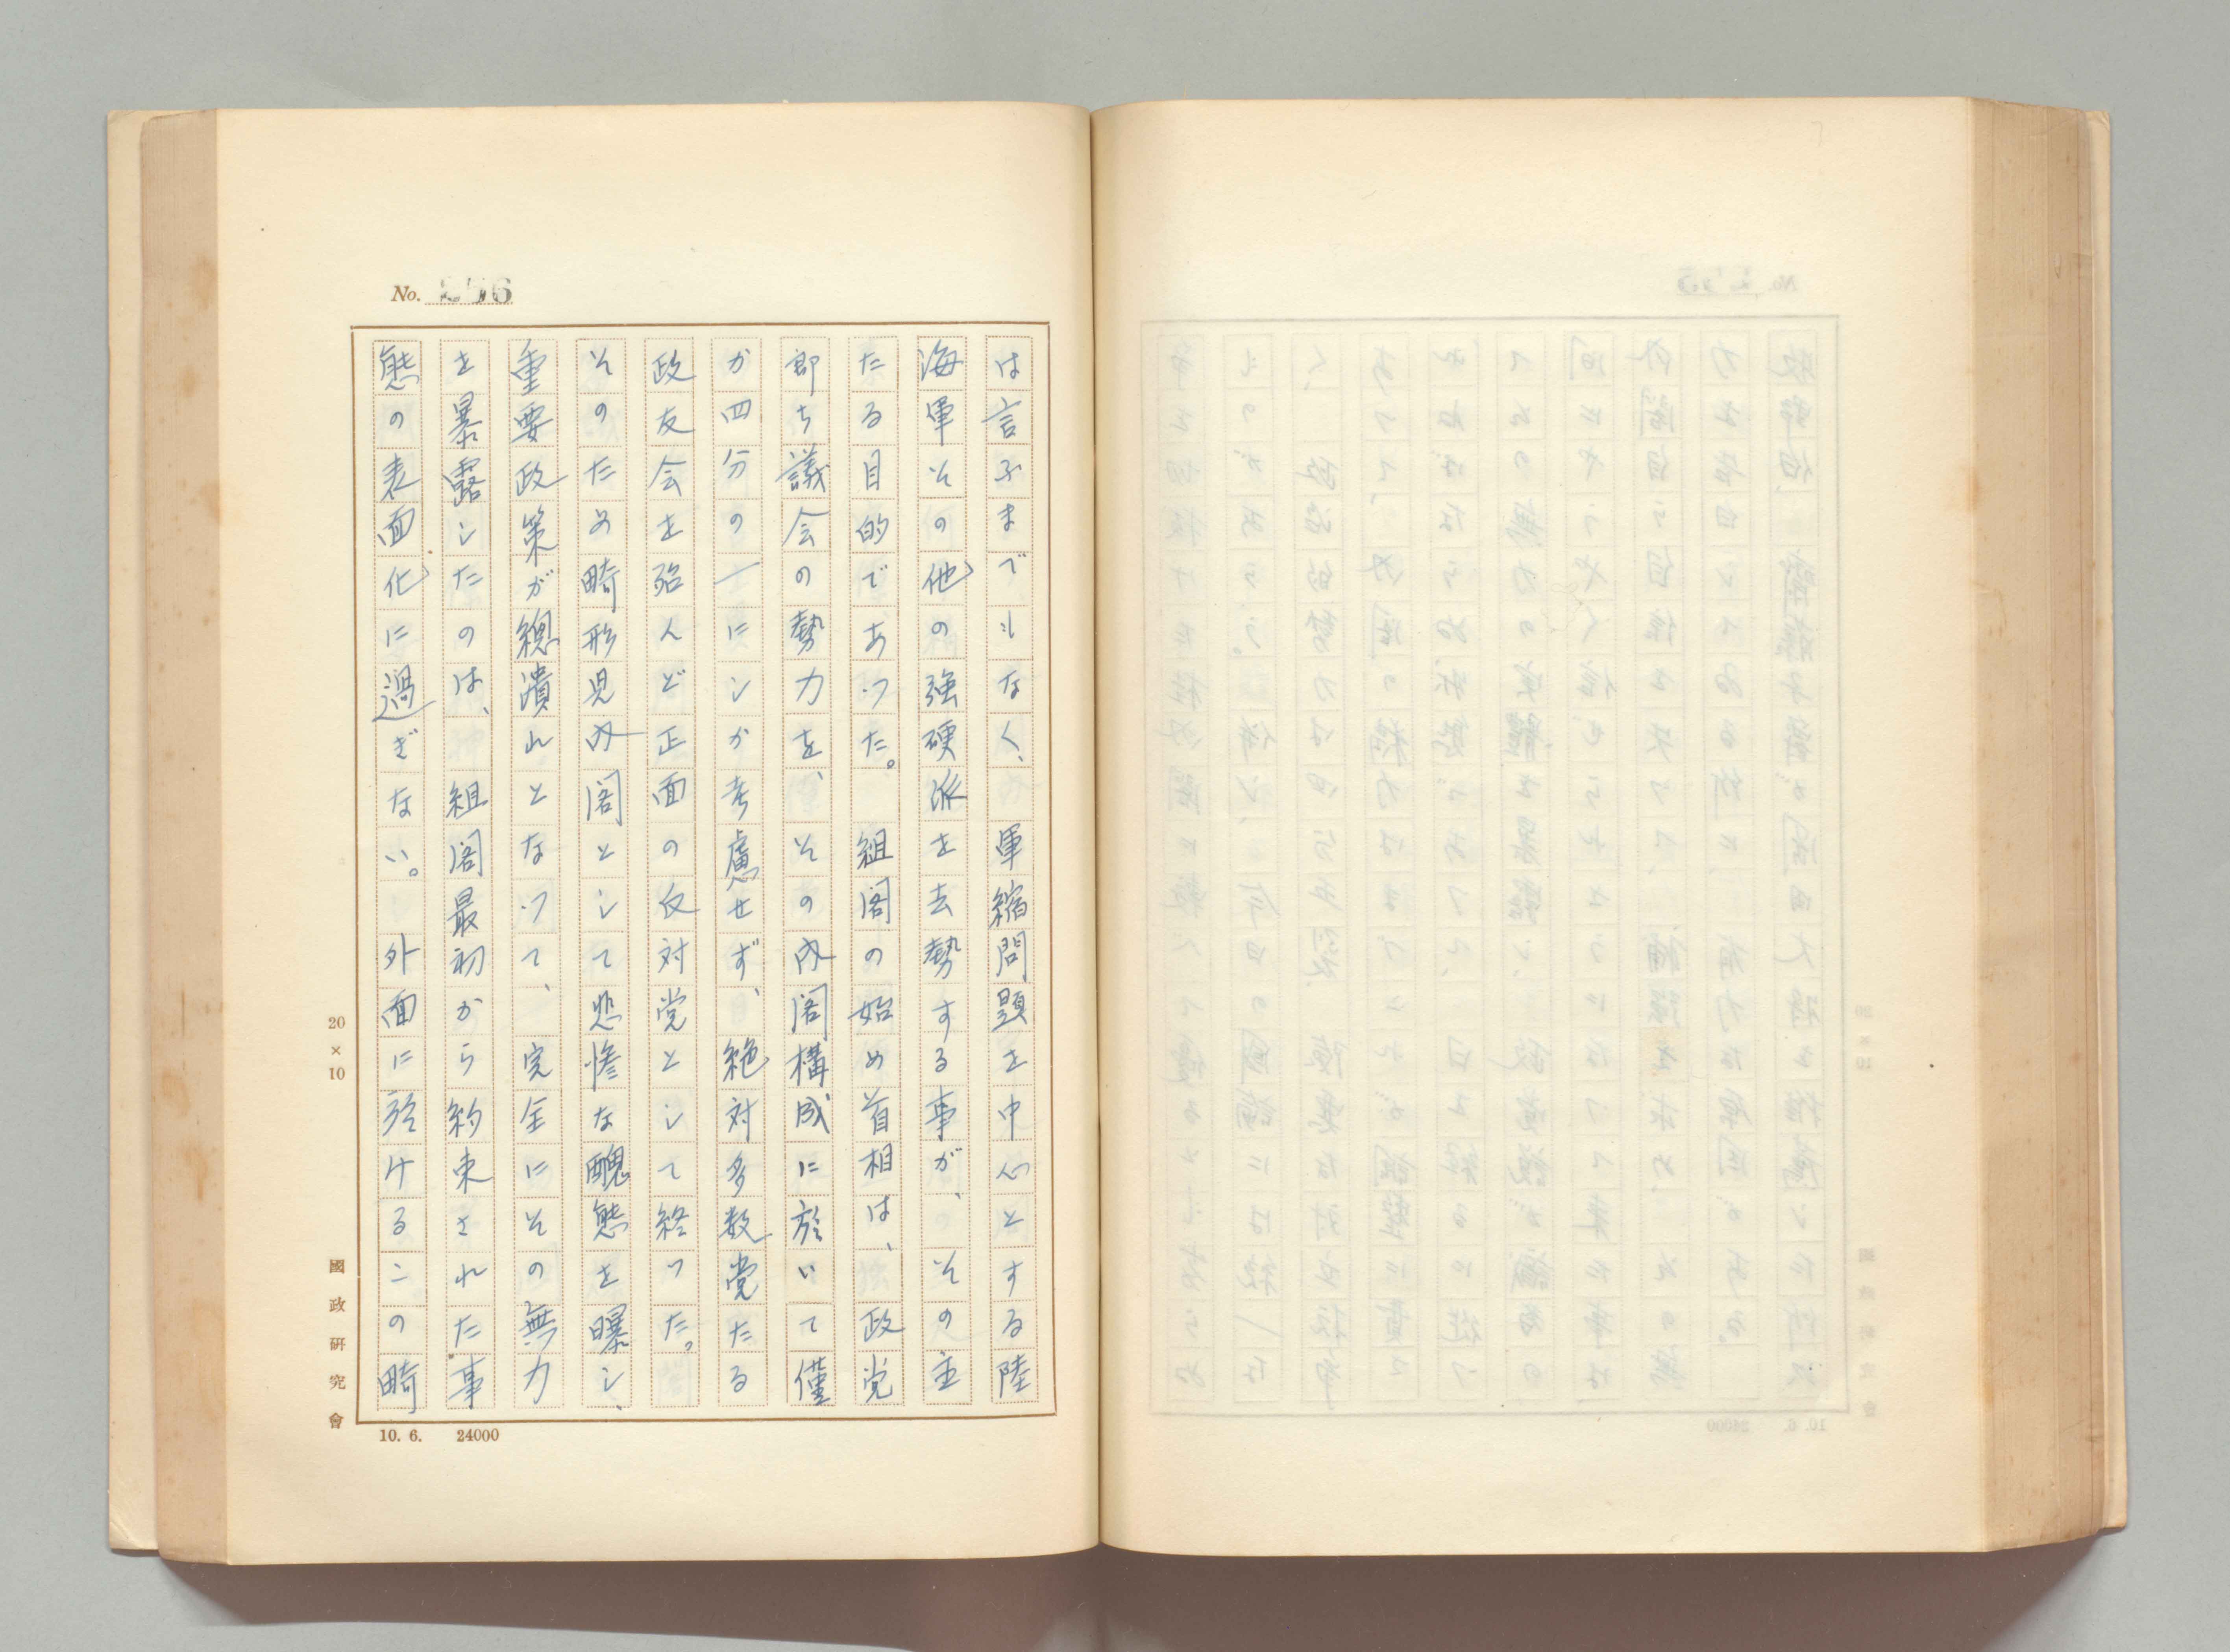 No. 256
は言ふまでもなく、軍縮問題を中心とする陸
海軍その他の強硬派を去勢する事が、その主
たる目的であつた。組閣の始め首相は、政党
即ち議会の勢力を、その内閣構成に於いて僅
か四分の一にしか考慮せず、絶対多数党たる
政友会を殆んど正面の反対党として終つた。
そのための畸形児内閣として悲惨な醜態を曝し、
重要政策が総潰れとなつて、完全にその無力
を暴露したのは、組閣最初から約束された事
態の表面化に過ぎない。外面に於けるこの畸
20×10
國政研究會
10. 6. 24000